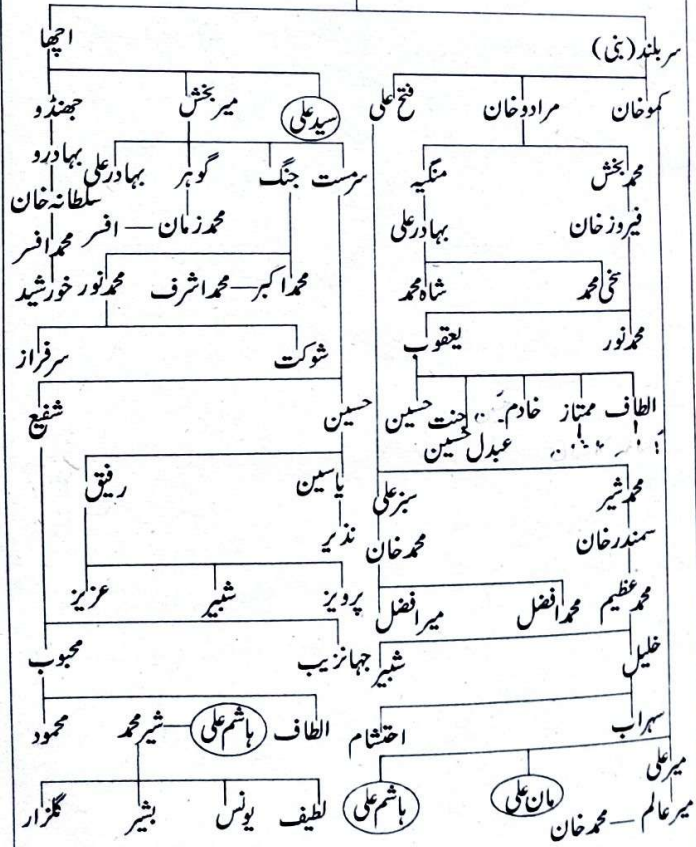 سربلند(بنی) اچھا
کموخان مرادوخان فتح علی سیدعلی میربخش جھنڈو
محمدبخش منگیہ سرمست جنگ گوہر بہادرعلی بہادرو
فیروزخان بہادرعلی محمدزمان — افسر سلطانہ خان
سخی محمد شاہ محمد محمداکبر — محمداشرف محمدنور خورشید محمدافسر
محمدنور یعقوب شوکت سرفراز
الطاف ممتاز خادم جنت حسین حسین شفیع
عبدل حسین
محمدشیر سبزعلی یاسین رفیق
سمندرخان محمدخان نذیر
محمدعظیم محمدافضل میرافضل پرویز شبیر عزیز
خلیل شبیر جہانزیب محبوب
سہراب احتشام الطاف ہاشم علی — شیرمحمد محمود
میرعلی مان علی ہاشم علی لطیف یونس بشیر گلزار
میرعالم — محمدخان